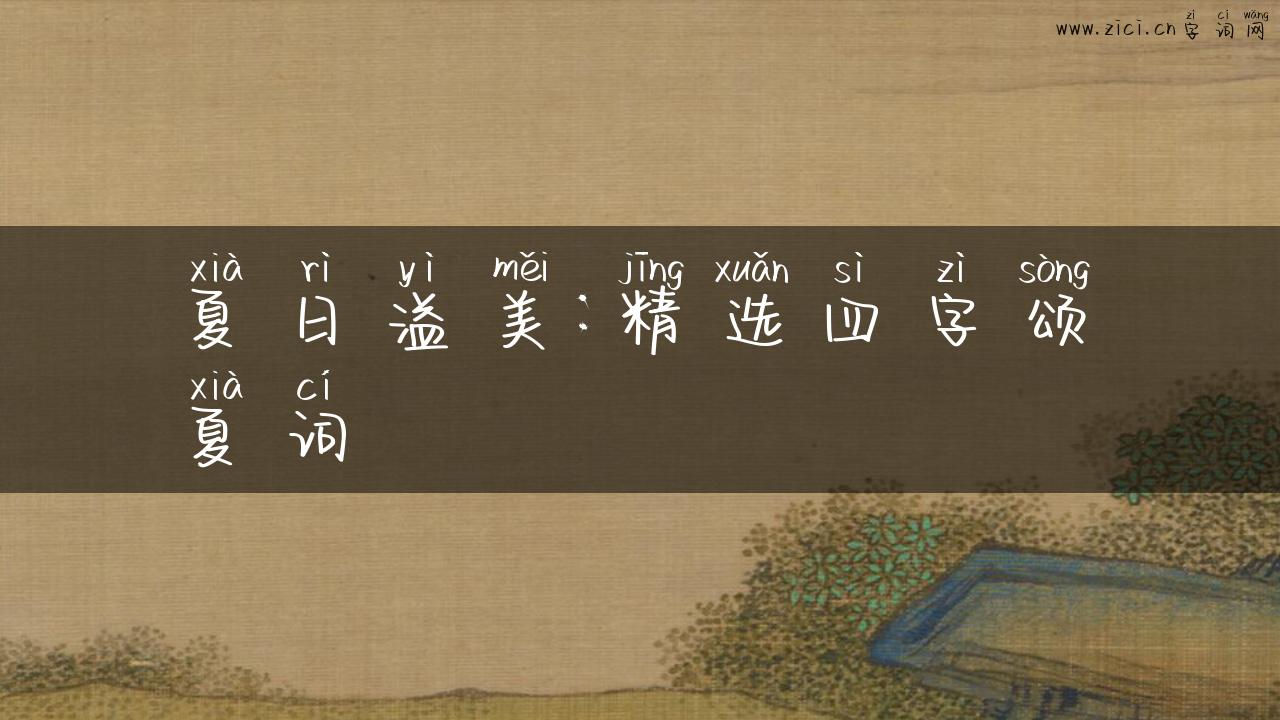 zì cí wǎng
www.zici.cn字词网
xià rì yì měi jīng xuǎn sì zì sòng
夏日溢美:精选四字颂
xià cí
夏词